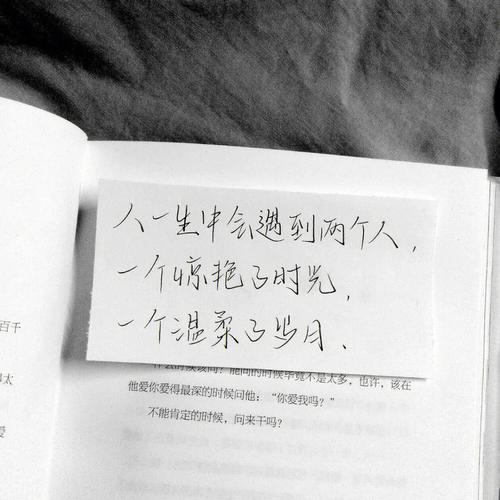 人一生中会遇到两个人，
一个惊艳了时光，
一个温柔了岁月、
什么时候该问？能问的时候毕竟不是太多，也许，该在
他爱你爱得最深的时候问他：“你爱我吗？”
不能肯定的时候，问来干吗？
百千
太
爱